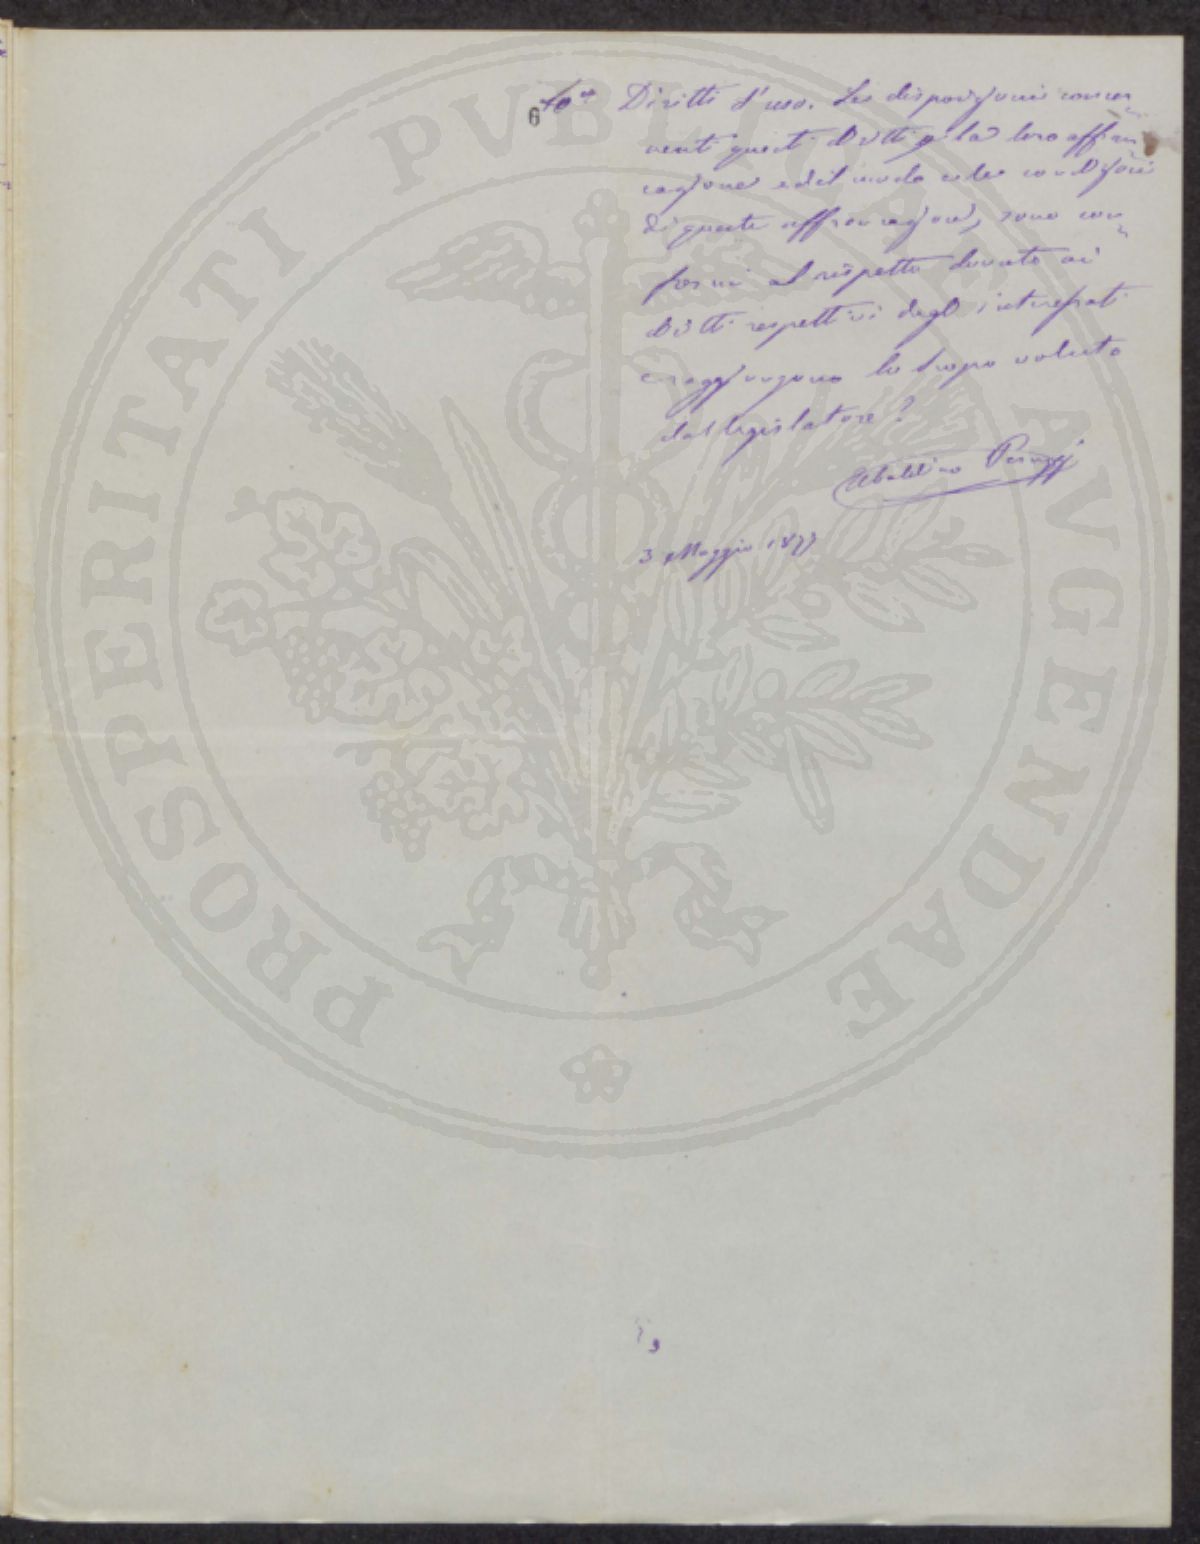 6 10º Diritti d'uso. Le disposizioni concer-
nenti questi diritti e la loro affran-
cazione ed il modo e le condizioni
di queste affrancazioni, sono con-
formi al rispetto dovuto ai
diritti respettivi degl'interessati
e raggiungono lo scopo voluto
dal legislatore?
Ubaldino Peruzzi
3 Maggio 1877
PROSPERITATI PVBLICAE AVGENDAE